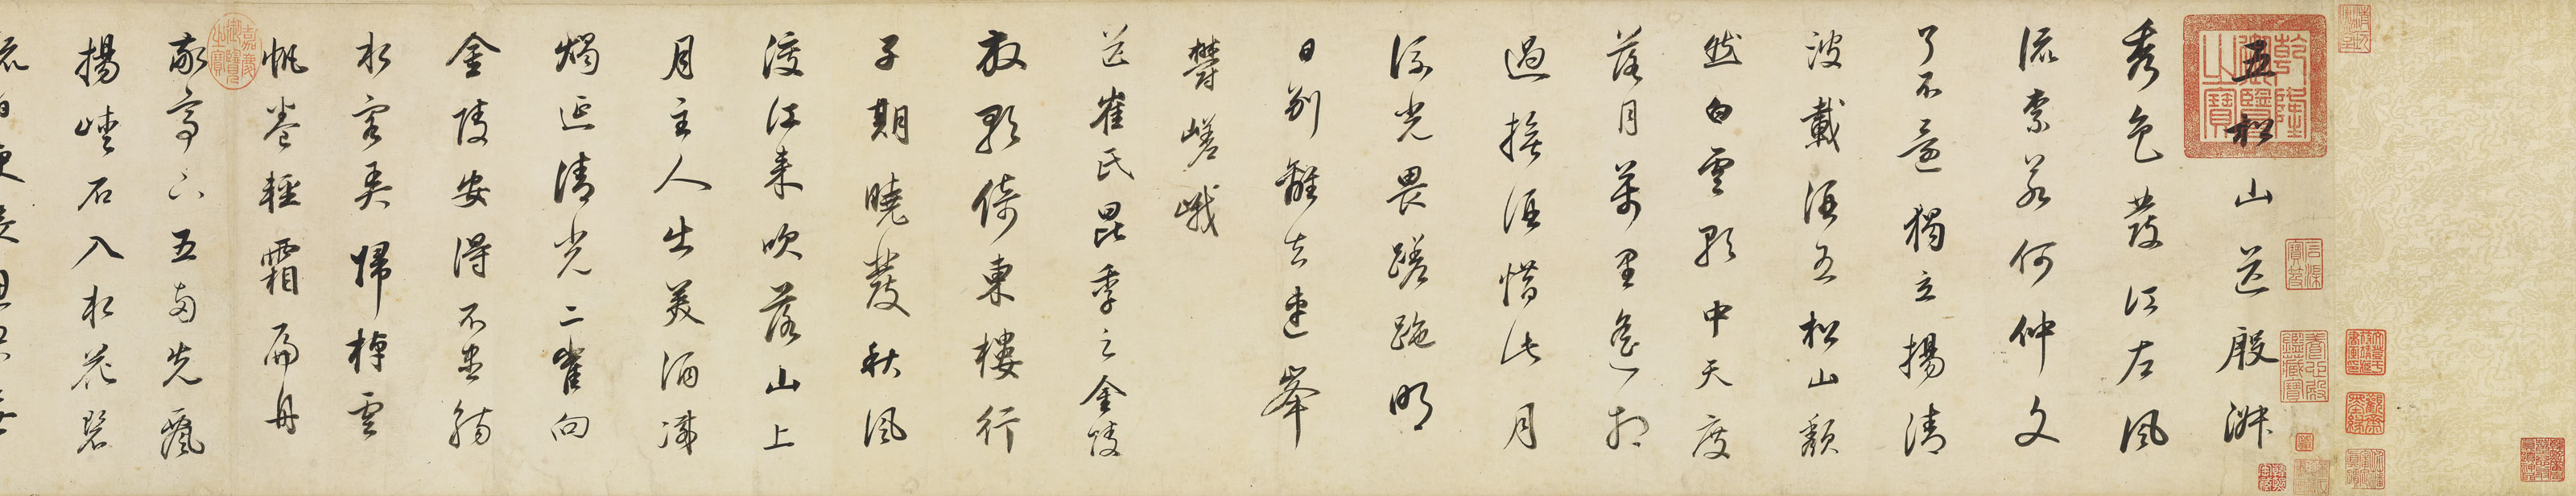 乾隆御覽之寶
石渠寶笈
養心殿鑑藏寶
五松山送殷淑
秀色發江左風
流柰若何仲文
了不還獨立揚清
波載酒五松山頹
然白雲歌中天度
落月萬里遙相
過撫酒惜此月
流光畏蹉跎明
日別離去連峯
鬱嵯峨
送崔氏昆季之金陵
放歌倚東樓行
子期曉發秋風
渡江來吹落山上
月主人出美酒滅
燭延清光二崔向
金陵安得不盡觴
水客弄歸棹雲
帆卷輕霜扁舟
敬亭下五兩先飄
嘉慶御覽之寶
揚峽石入水花碧
流日更長思君無